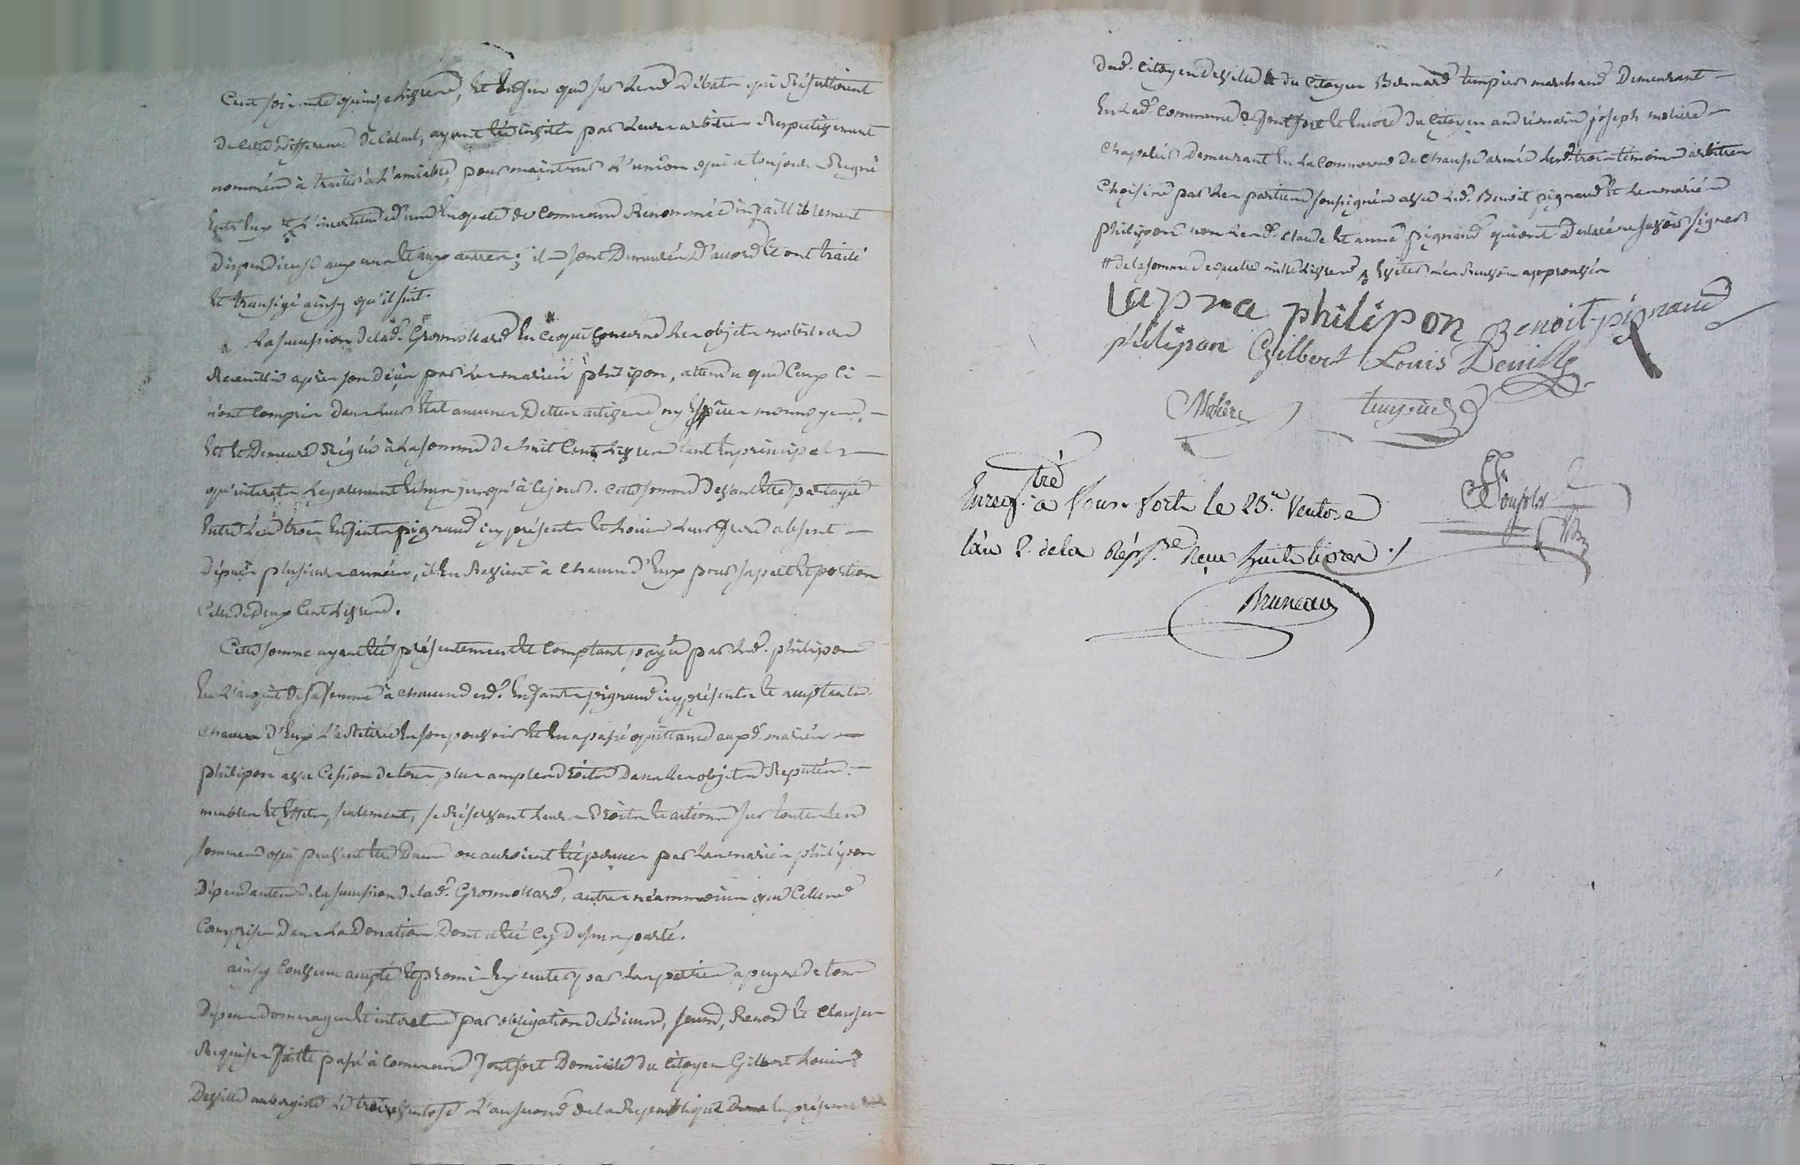 Cent soixante quinze livres, et enfin que sur les d. débats qui résultoient
de cette différence de calcul, ayant été insisté par leurs arbitres respectivement
nommés à traiter à l'amiable, pour maintenir l'union qui a toujours régné
entr'eux et l'incertitude d'une enquete de commune renommée infailliblement
dispendieuse aux uns et aux autres; ils sont demeurés d'accord et ont traité
et transigé ainsy qu'il suit.
La succession de lad. Grosmollard en ce qui concerne les objets mobiliers
recueillis après son décès par les mariés philipon, attendu que ceux ci
n'ont compris dans leur état aucunes dettes actives ny espèces monnoyées,
est et demeure réglée à la somme de huit cent livres tant en principal
qu'interets légalement échus jusqu'à ce jour. cette somme devant être partagée
entre les trois enfants pigraud icy présents et Louis leur frère absent
depuis plusieurs années, il en revient à chacun d'eux pour sa part et portion
celle de deux cent livres.
Cette somme ayant été présentement et comptant payée par led. philipon
en l'acquit de sa femme à chacun desd. enfants pigraud icy présents et acceptants
chacun d'eux l'a retirée en son pouvoir et en a passé quittance auxd. mariés
philipon avec cession de tous plus amples droits dans les objets réputés
meubles et effets seulement, se réservant leurs droits et actions sur toutes les
sommes qui peuvent être dues ou auroient été perçues par les mariés philipon
dépendantes de la succession de lad. Grosmollard, autres néanmoins que celles
comprises dans la donation dont a été cy dessus parlé.
ainsy convenu accepté et promis exécuter par les parties a peyne de tous
dépens dommages et interets par obligation de biens, soumis, renon. et clauses
requises fait et passé à commune Montfort domicile du citoyen Gilbert Louis
Deville aubergiste le trois ventose l'an second de la République en présence
dud. citoyen Deville et du citoyen Bernard tempier marchand demeurant
en lad. commune de Montfort et encore du citoyen andré marie joseph molière
chapelier demeurant en la commune de Chaussé armée lesd. trois témoins arbitres
choisis par les parties soussignés avec led. Benoit pigraud et les mariés
philipon non lesd. Claude et anne pigraud qui ont declaré ne savoir signer
# de la somme de quatre mille livres
Lapra philipon Benoit pigraud
philipon Gilbert Louis Deville
Molière tempier
Enregtré a le 25e Ventose
lan 2 de la Répque Reçu huit livres
Bruneau